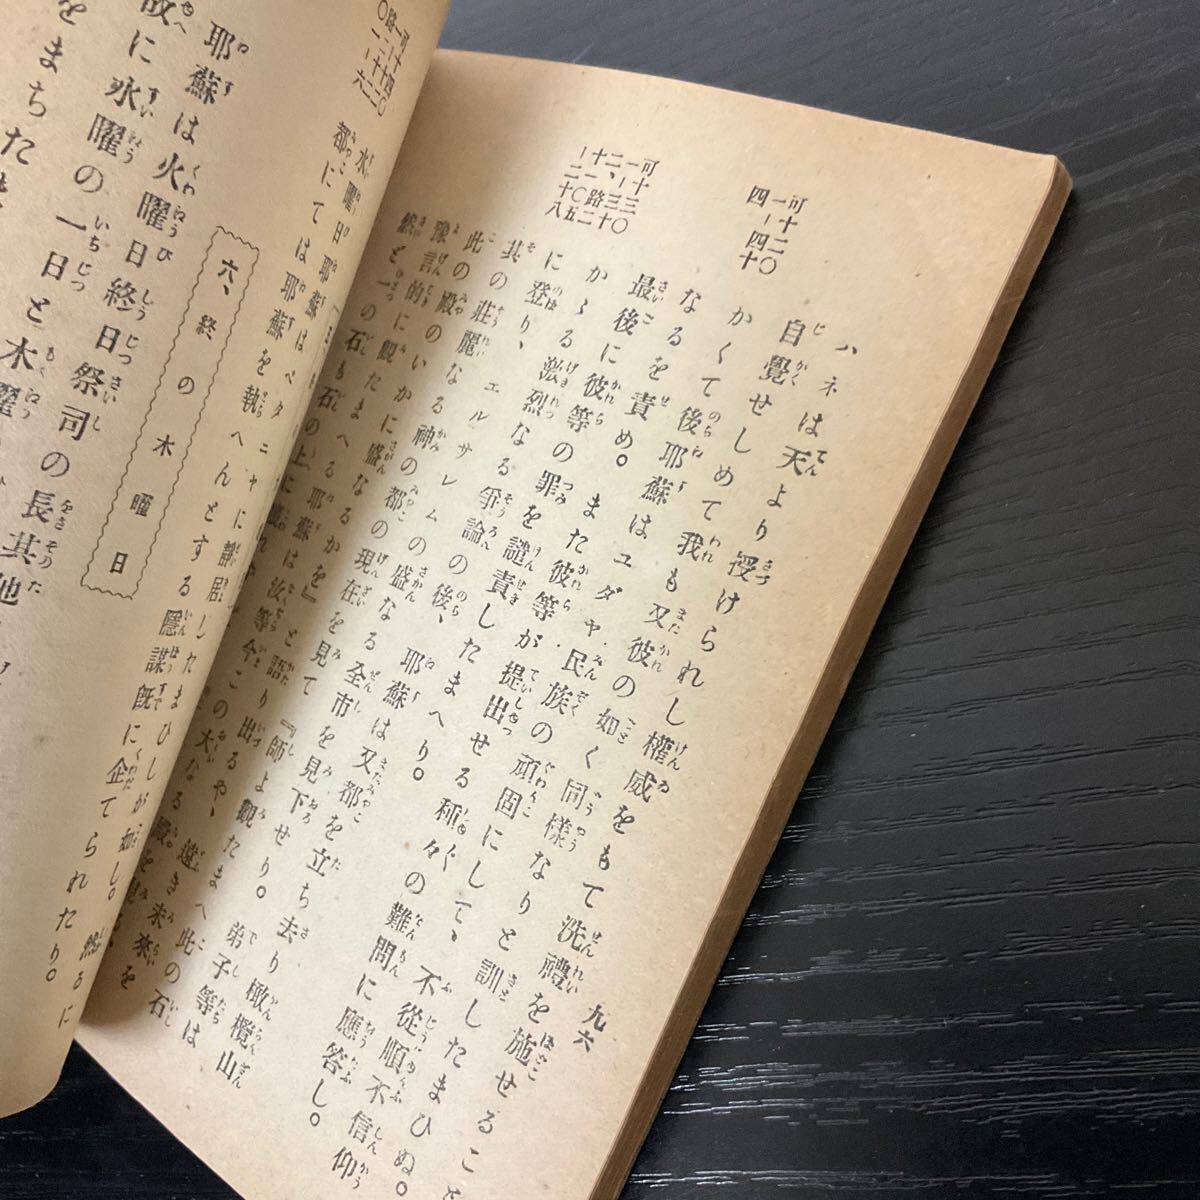 九六
ハネは天より授けられし權威をもて洗禮を施せること
自覺せしめて我も又彼の如く同樣なりと訓したまひぬ。
かくて後耶蘇はユダヤ民族の頑固にして、不從順不信仰
なるを責め。また彼等が提出せる種々の難問に應答し。
最後に彼等の罪を譴責したまへり。
かゝる激烈なる爭論の後、耶蘇は又都を立ち去り橄欖山
に登り、エルサレムの盛なる全市を見下せり。弟子等は
其の莊麗なる神の都の現在を見て『師よ觀たまへ此の石
此の殿のいかに盛なるかを』と語り出るや、遠き未來を
豫言的に觀たまへる耶蘇は汝等今この大なる殿を
然と一の石も石の上に
可十二〇
一ー四十
四
可十三〇
一ー三十
路二
十〇五
ー二十八
六、終の木曜日
水曜日耶蘇はベタニヤに靜居したまひしが如し。然るに
都にては耶蘇を執へんとする隱謀既に企てられたり。
可十四〇
路二十二〇
一ー六
耶蘇は火曜日終日祭司の長其他
故に水曜の一日と木曜
をまちたま